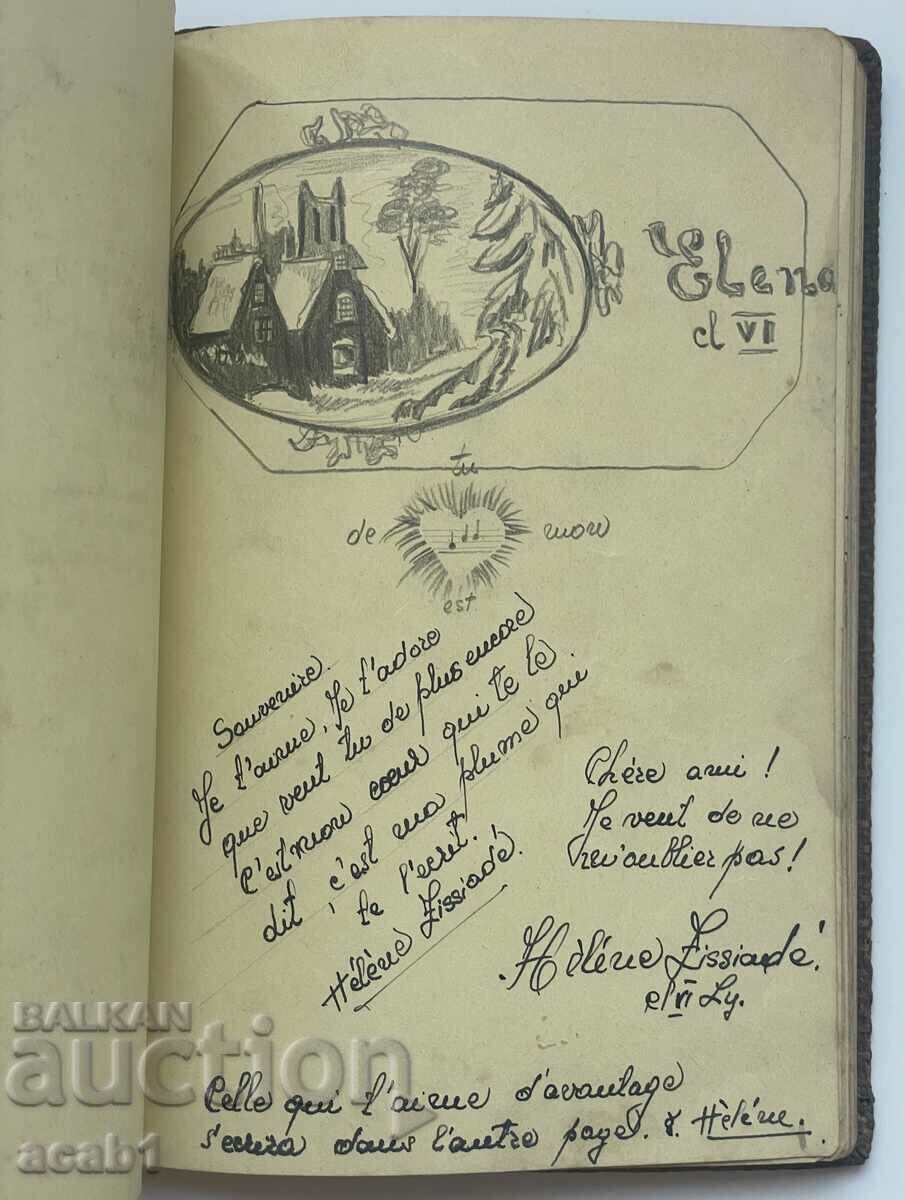 Elena
cl VI
tu
de
mon
est
Souvenire.
Je t'aime, Je t'adore
que veut tu de plus encore
C'est mon coeur qui te le
dit, c'est ma plume qui
te l'écrit!
Hélène Zissiadé.
Chére ami!
Je veut de ne
m'oublier pas!
Hélène Zissiadé.
cl VI Ly.
Celle qui t'aime d'avantage
s'ecrira dans l'autre page. Hélène.
BALKAN
auction
acab1